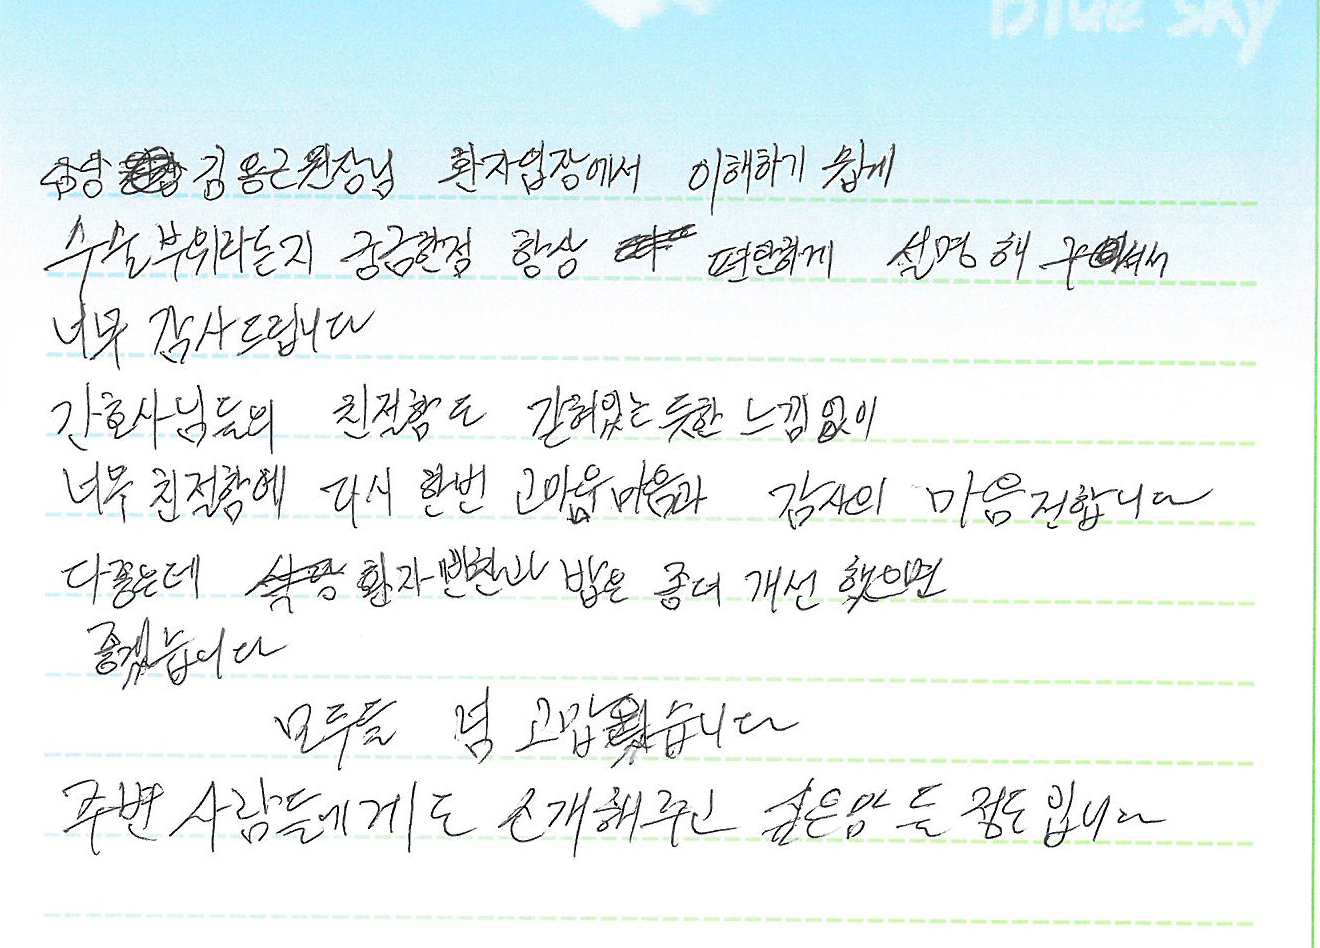 Blue sky
김용근원장님 환자입장에서 이해하기 쉽게
수술부위라든지 궁금한점 항상 편안하게 설명해 주셔서
너무 감사드립니다
간호사님들의 친절함도 갇혀있는 듯한 느낌없이
너무 친절함에 다시 한번 고마움마음과 감사의 마음전합니다
다좋은데 환자반찬과 밥은 좀더 개선 했으면
좋겠습니다
모두들 넘 고맙습니다
주변 사람들에게도 소개해주고 싶은맘 들 정도입니다